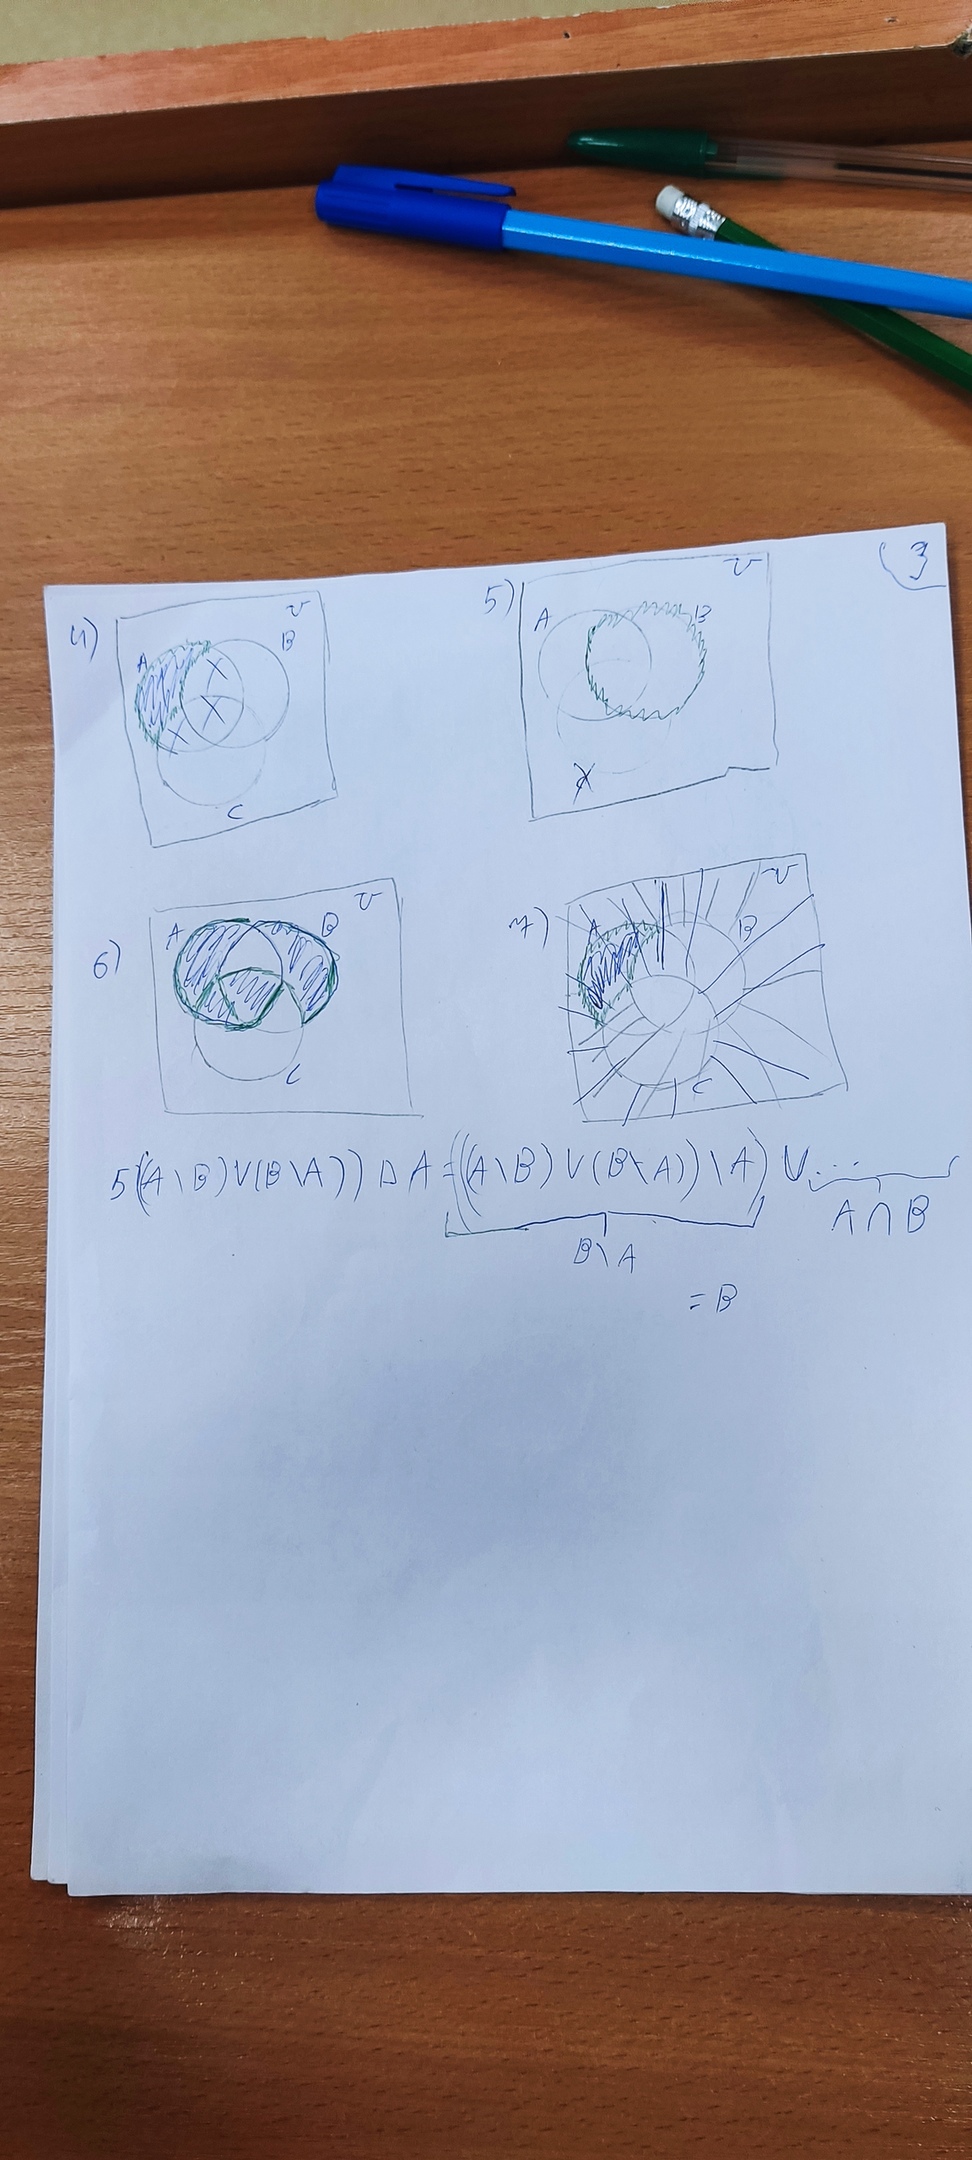 3
4) U
A B
C
5) U
A B
6) U
A B
C
7) U
A B
C
5((A \ B) ∪ (B \ A)) △ A = (((A \ B) ∪ (B \ A)) \ A) ∪ ...
B \ A
A ∩ B
= B